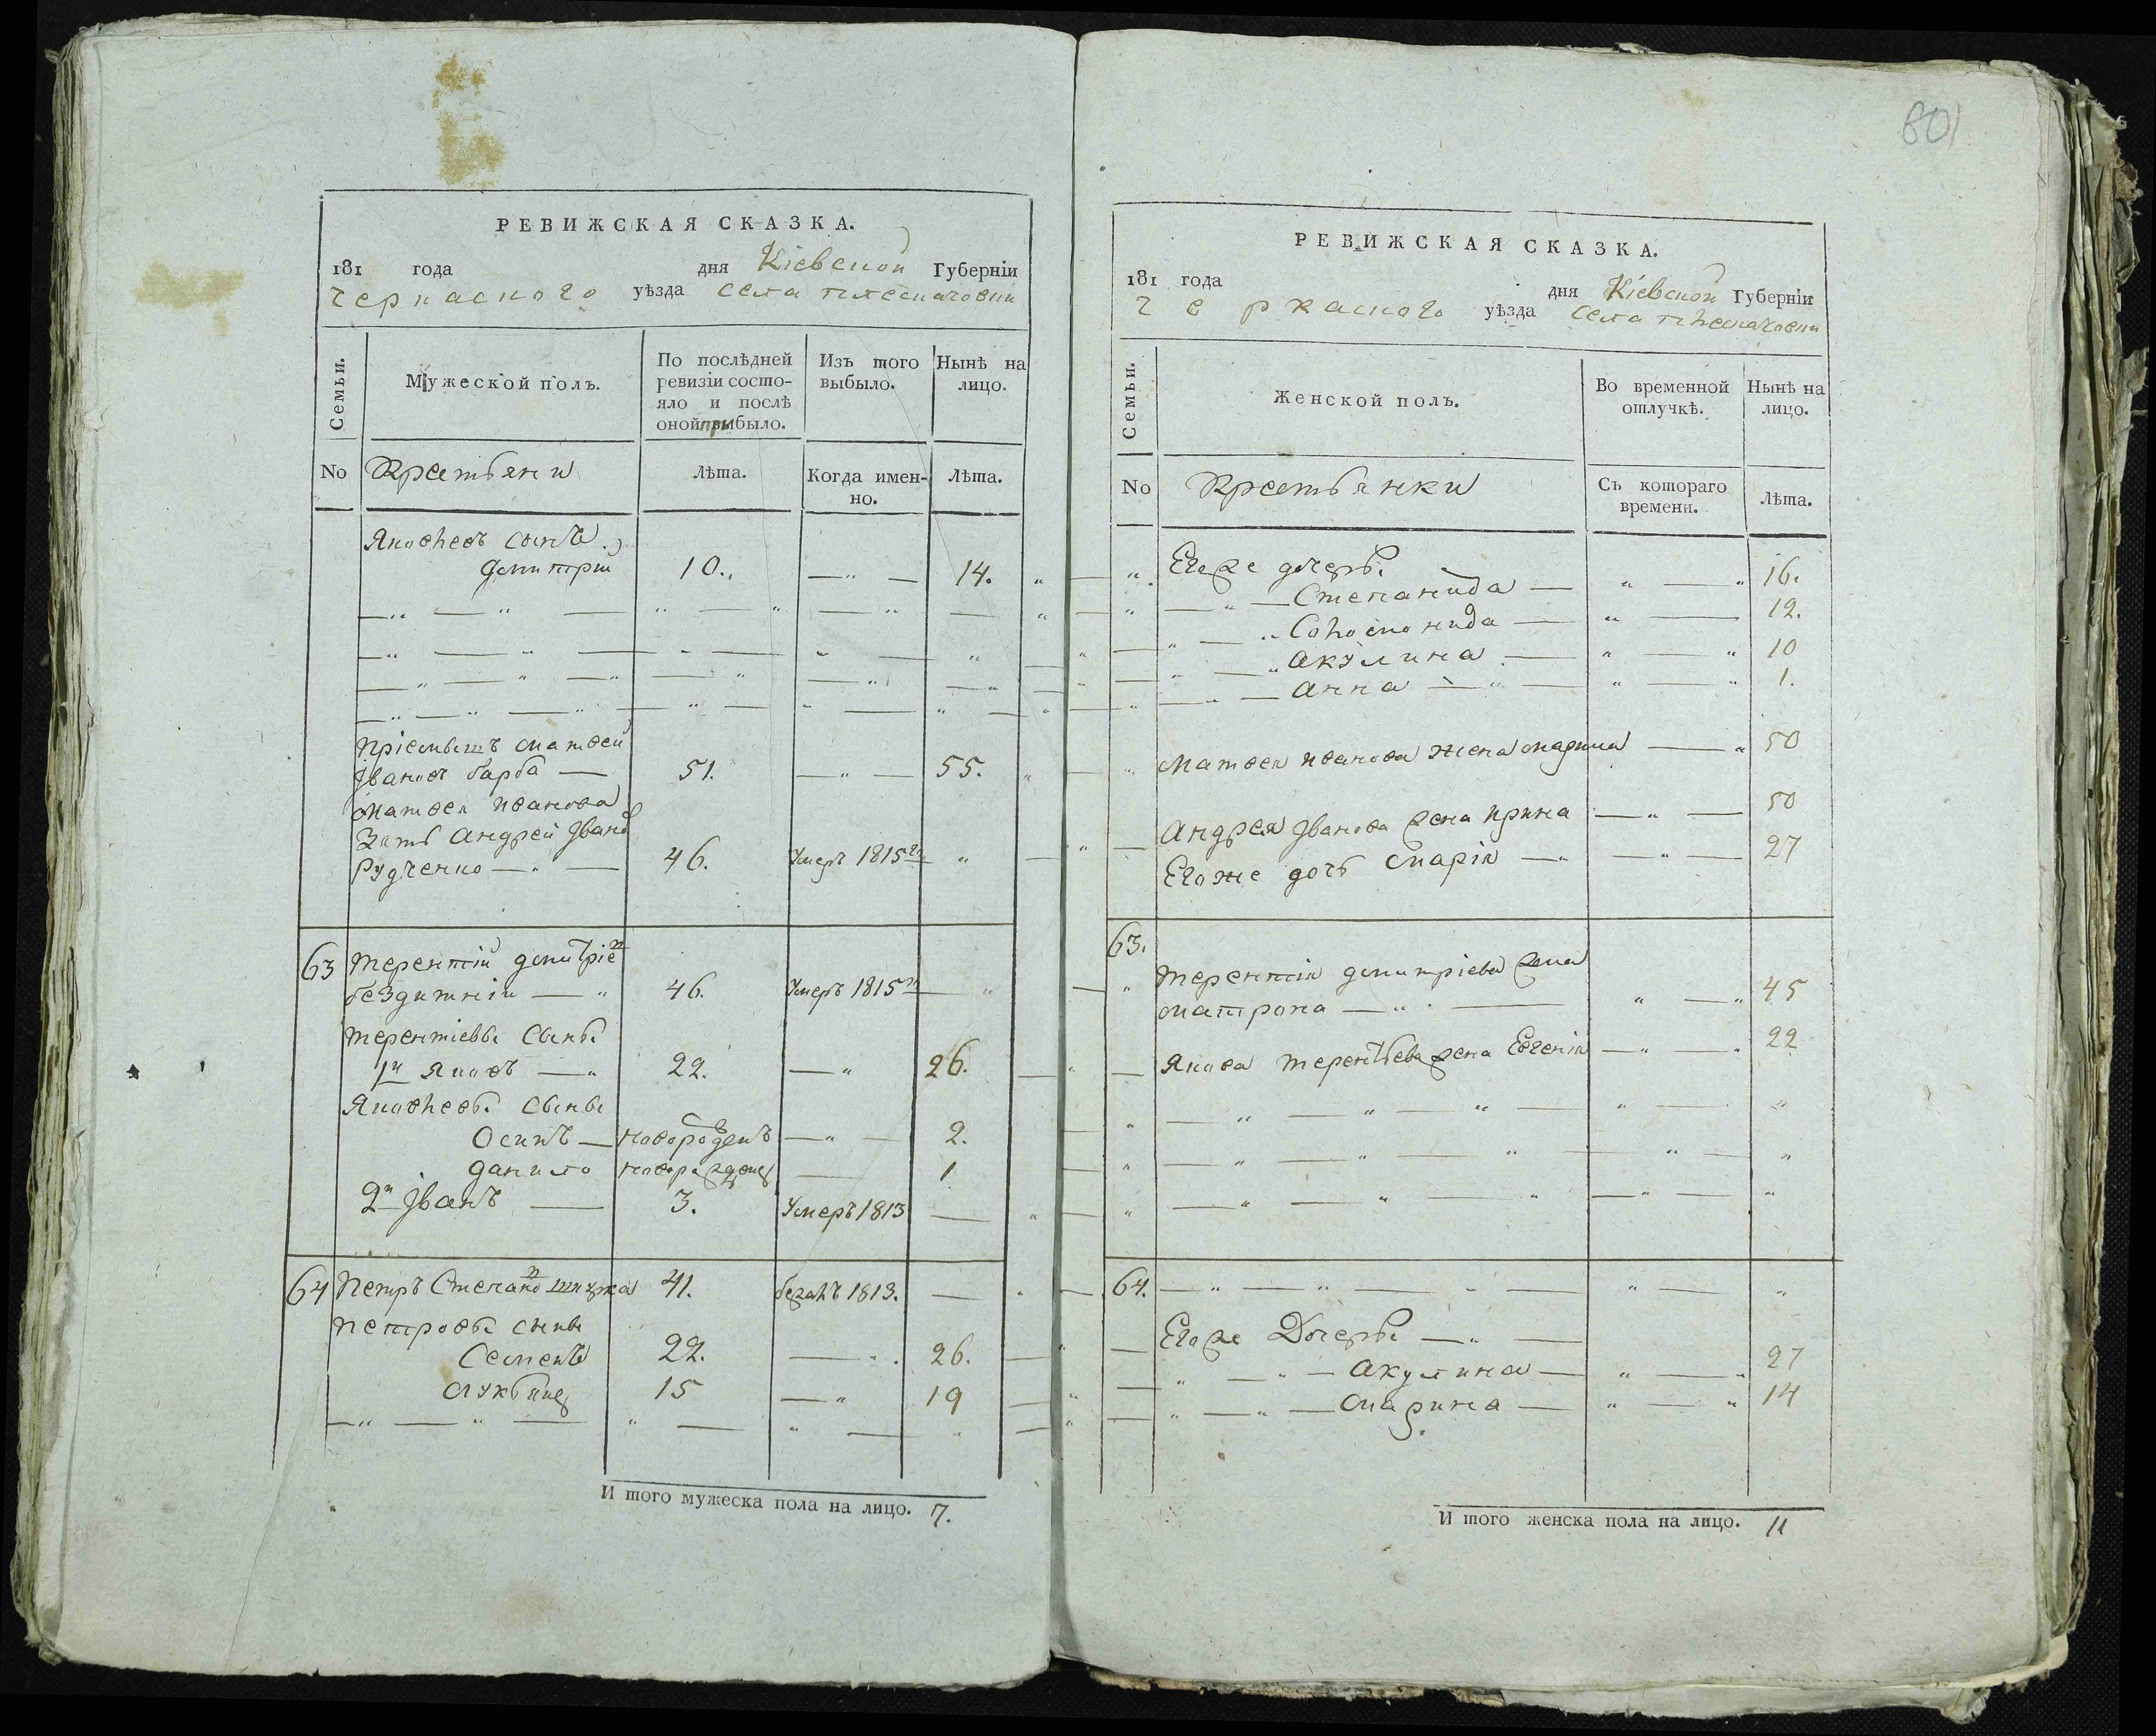 РЕВИЖСКАЯ СКАЗКА.
181 года дня Кіевской Губерніи
Черкаского уѣзда села плескачовки
Семьи.
Мужеской полъ.
По послѣдней ревизіи состо-
яло и послѣ
оной прибыло.
Изъ того
выбыло.
Нынѣ на
лицо.
No Крестьяни
Лѣта.
Когда имен-
но.
Лѣта.
Яковѣевъ сынъ
Дмитрий 10. — " — 14.
Пріемышъ Матвей
Ивановъ барба — 51. — " — 55.
Матвея иванова
Зять Андрей Іванов
Рудченко — " — 46. Умеръ 1815 "
63 Терентій дмитріев
бездитній — " 46. Умеръ 1815 — "
терентіевы сыны
1й Яковъ — " 22. — " 26.
Яковѣевы сыны
Осипъ — новорожденъ — " — 2.
данило новорожденъ — 1
2й Іванъ — 3. Умеръ 1813 —
64 Петръ Степанов 41. бежалъ 1813. —
Петровы сыны
Семенъ 22. — " 26.
15 — " 19
И того мужеска пола на лицо. 7.
801
РЕВИЖСКАЯ СКАЗКА.
181 года дня Кіевской Губерніи
Черкаского уѣзда села плескачовки
Семьи.
Женской полъ.
Во временной
отлучкѣ.
Нынѣ на
лицо.
No Крестьянки
Съ котораго
времени.
Лѣта.
Егоже дочеры
Степанида — " — " 16.
" — " " — 12.
" — " Акулина — " — " 10
" — Анна — " — " — " 1.
Матвея иванова жена марина — " 50
Андрея Іванова жена ирина — " — 50
Егоже дочь Марія — " — " — 27
63.
Терентія дмитріева жена
матрона — " — " — " 45
Якова терентьева жена Евгенія — " — " 22
64.
Егоже Дочеры — " —
" — " — Акулина — " — " 27
" — " — Марина — " — " 14
И того женска пола на лицо. 11